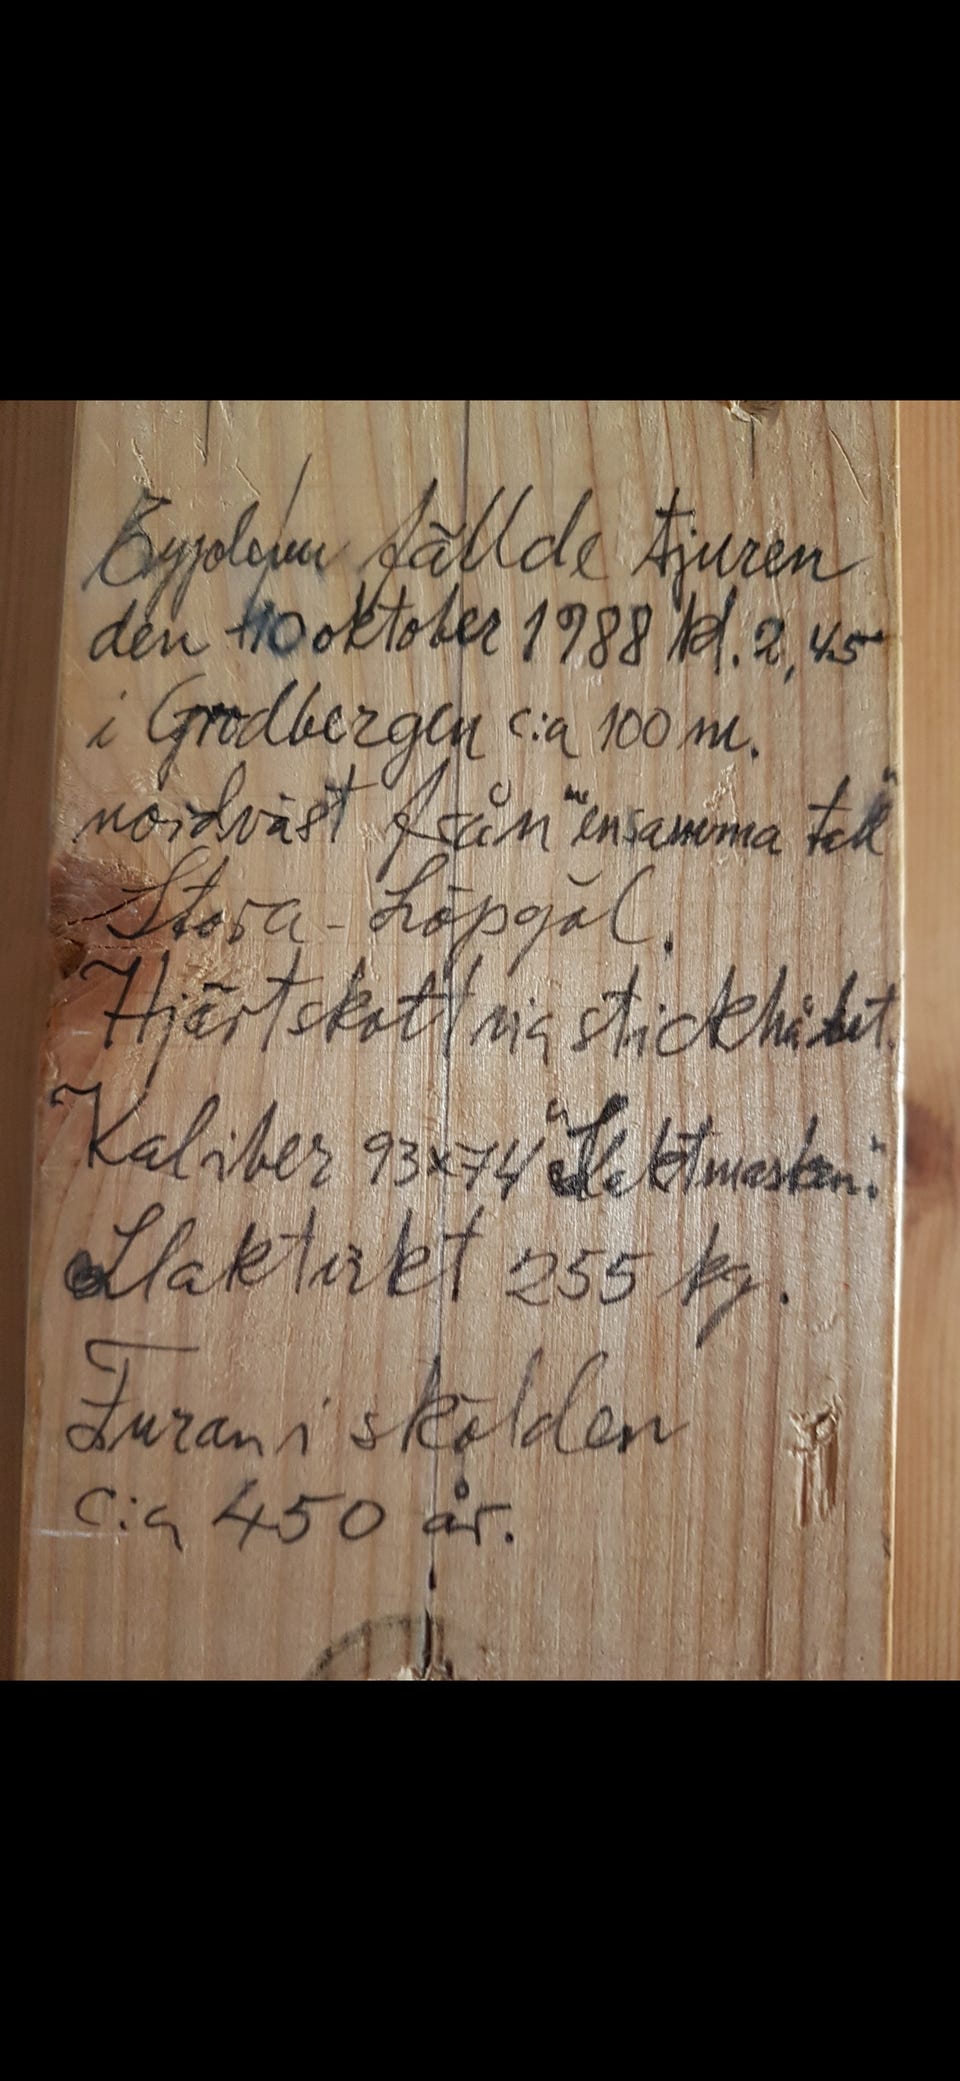 fällde tjuren
den 10 oktober 1988 kl. 2,45
i Grodbergen c:a 100 m.
nordväst från "ensamma tall"
Stora-Löpgöl.
Hjärtskott via stickhålet.
Kaliber 93x74 "Slaktmasken".
Slaktvikt 255 kg.
Furan i skölden
c:a 450 år.